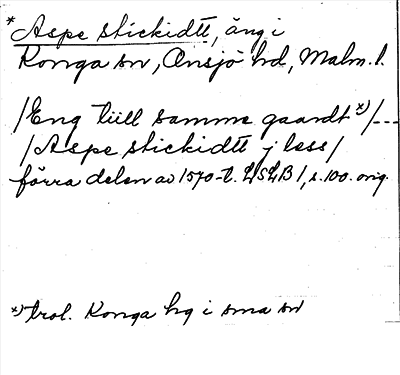 * Aspe stickidtt, äng i
Konga sn, Onsjö hd, Malm. l.
/Eng tiill samme gaardt x)/---
/Aspe stickidtt j less/
förra delen av 1570-t. LSLB 1, s. 100. orig.
x) trol. Konga hg i sma sn